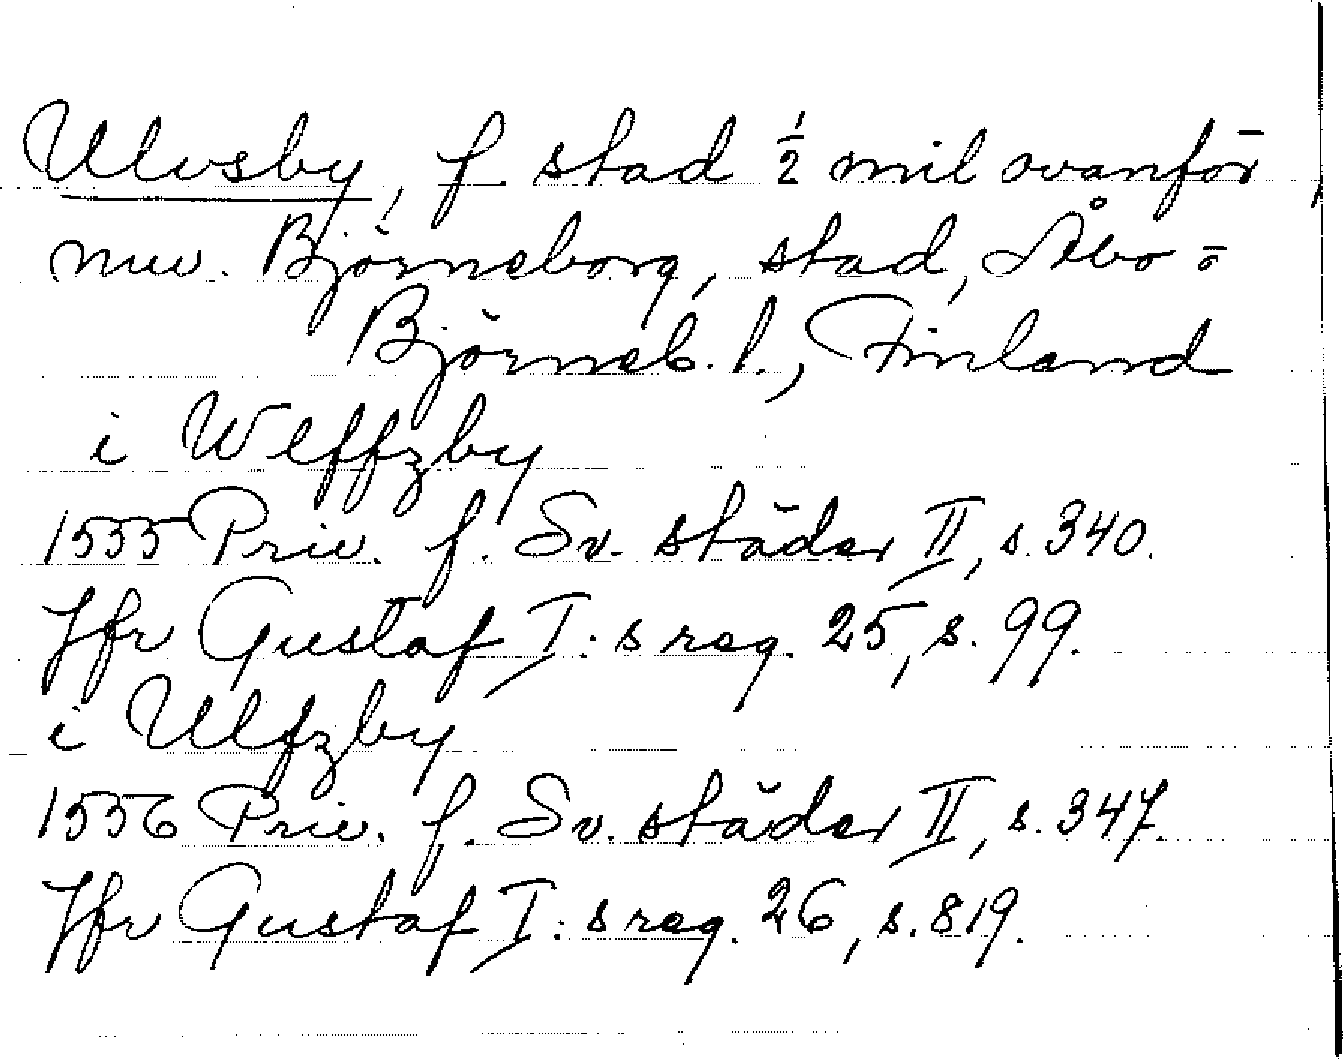 Ulvsby, f stad ½ mil ovanför
nuv. Björneborg, stad, Åbo o
Björneb. l., Finland
i Wlffzby
1555 Priv. f. Sv. städer II, s. 340.
Jfr Gustaf I:s reg. 25, s. 99.
i Ulfzby
1556 Priv. f. Sv. städer II, s. 347.
Jfr Gustaf I:s reg. 26, s. 819.